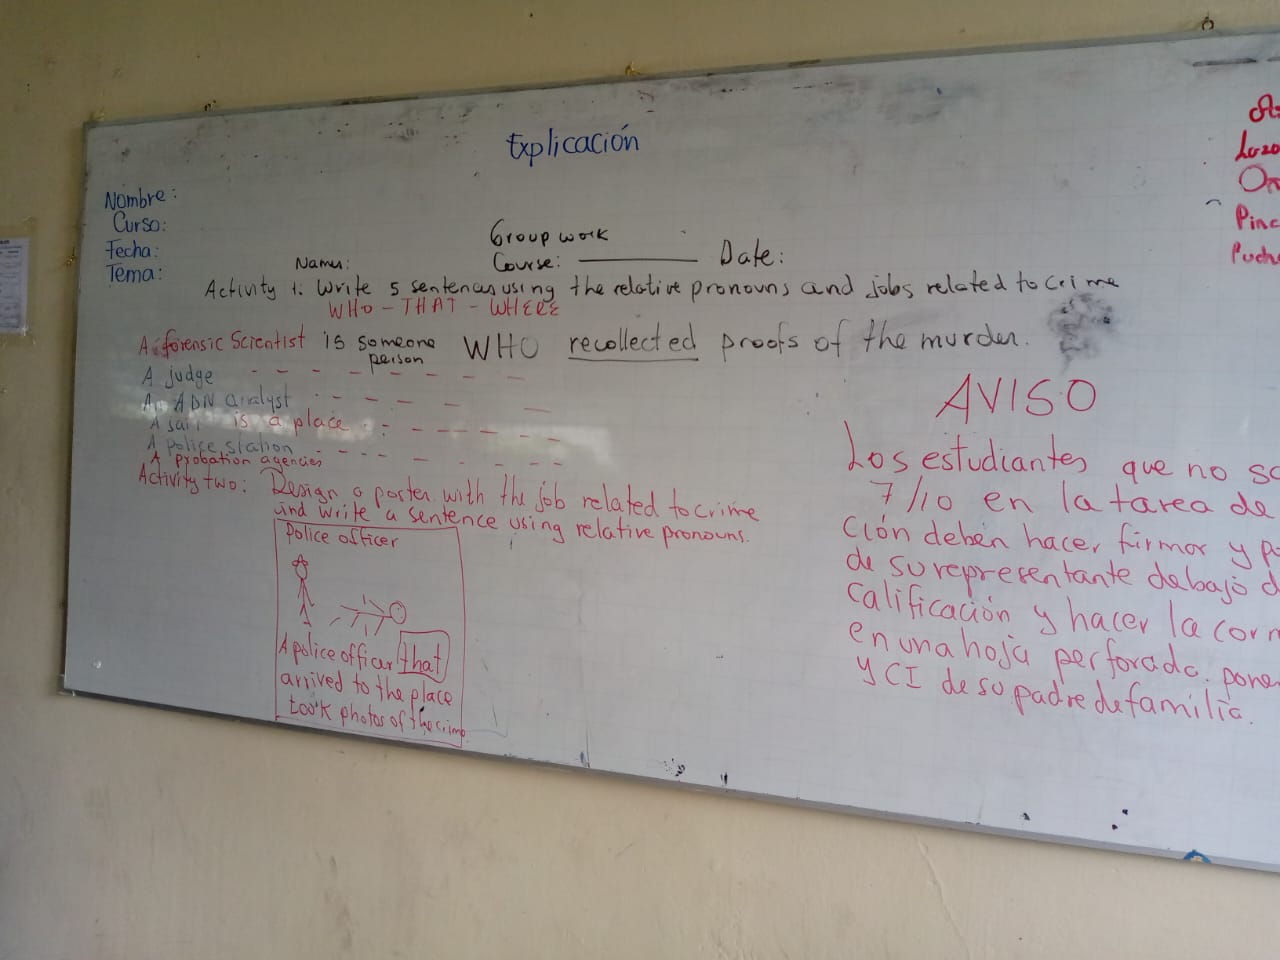 Explicación
Nombre:
Curso:
Fecha:
Tema:
Group work
Names: Course: Date:
Activity 1: Write 5 sentences using the relative pronouns and jobs related to crime
WHO - THAT - WHERE
A forensic Scientist is someone WHO recollected proofs of the murder.
person
A judge
An ADN analyst
A jail is a place
A police station
A probation agencies
Activity two: Design a poster with the job related to crime
and write a sentence using relative pronouns.
Police officer
A police officer that
arrived to the place
took photos of the crime
AVISO
Los estudiantes que no
7/10 en la tarea de
ción deben hacer firmar y
de su representante debajo
calificación y hacer la
en una hoja perforada. poner
y CI de su padre de familia.